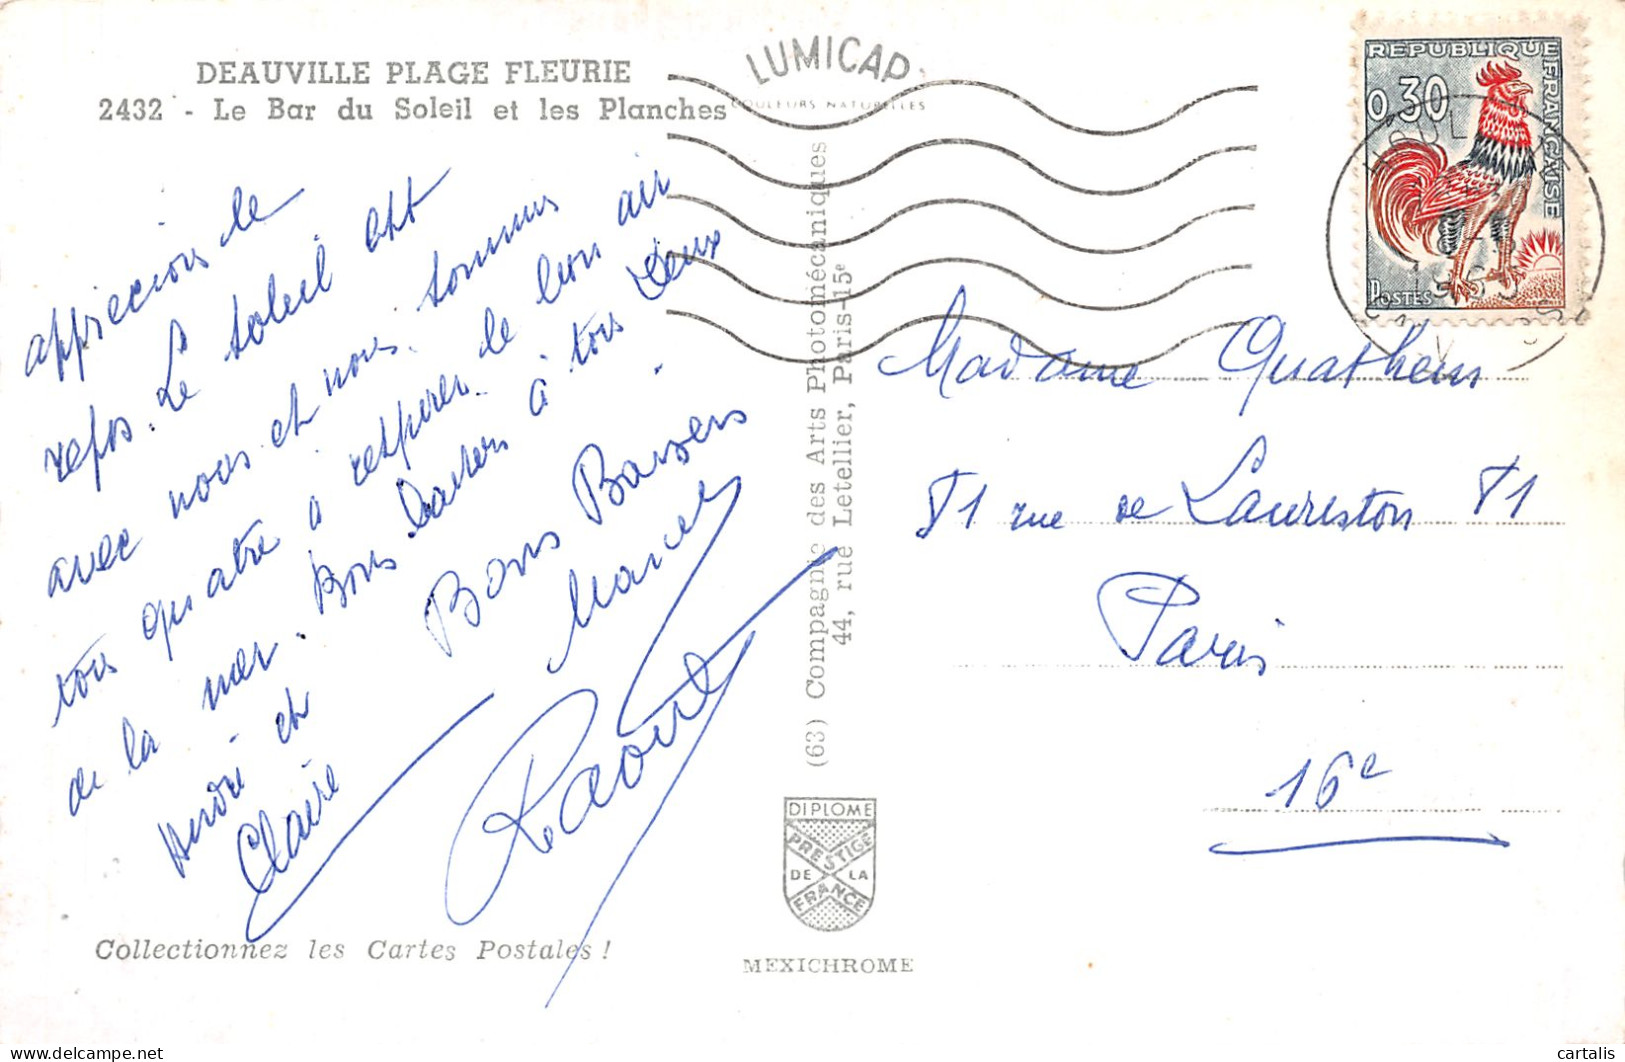 DEAUVILLE PLAGE FLEURIE
2432 - Le Bar du Soleil et les Planches
LUMICAP
COULEURS NATURELLES
apprecions le
repos. Le soleil est
avec nous et nous sommes
tous quatre à respirer le bon air
de la mer. Bons baisers à tous deux
André et
Claire
Bons Baisers
Marcel
Raoul
(63) Compagnie des Arts Photomécaniques
44, rue Letellier, Paris-15e
REPUBLIQUE
FRANÇAISE
0,30
POSTES
Madame
81 rue de Laureston 81
Paris
16e
DIPLOME
PRESTIGE
DE LA
FRANCE
MEXICHROME
Collectionnez les Cartes Postales !
cartalis